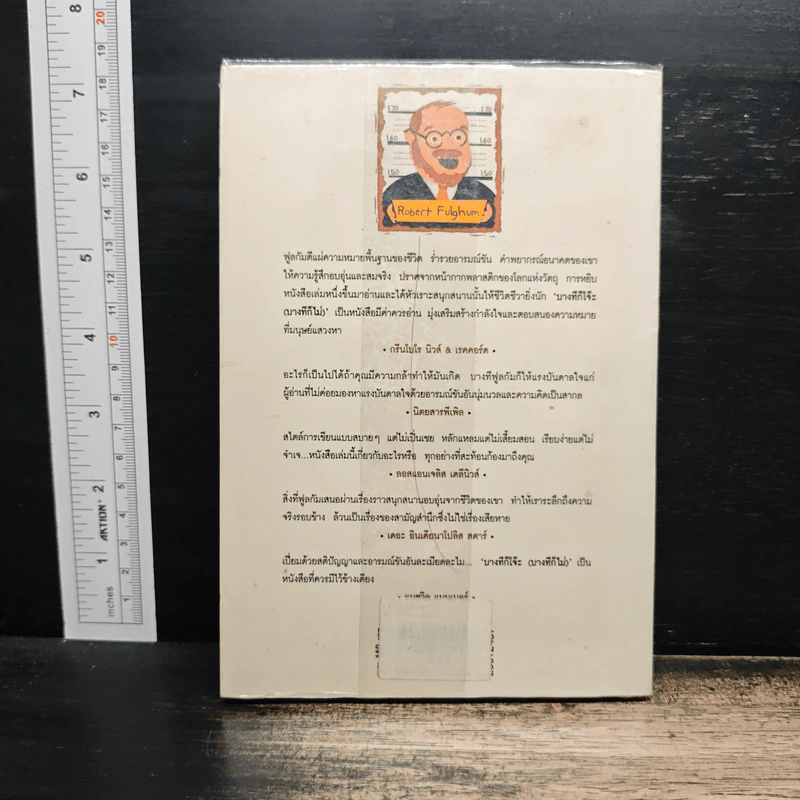 8
20
19
7
18
17
16
6
15
14
13
5
12
11
4
10
9
8
3
7
6
2
5
4
AKTION
3
1
2
1
inches
170
170
160
160
150
150
Robert Fulghum!
ฟูลกัมตีแผ่ความหมายพื้นฐานของชีวิต ร่ำรวยอารมณ์ขัน คำพยากรณ์อนาคตของเขา
ให้ความรู้สึกอบอุ่นและสมจริง ปราศจากหน้ากากพลาสติกของโลกแห่งวัตถุ การหยิบ
หนังสือเล่มหนึ่งขึ้นมาอ่านและได้หัวเราะสนุกสนานนั้นให้ชีวิตชีวายิ่งนัก 'บางทีก็โจ๊ะ
(บางทีก็ไม่)' เป็นหนังสือมีค่าควรอ่าน มุ่งเสริมสร้างกำลังใจและตอบสนองความหมาย
ที่มนุษย์แสวงหา
• กรีนโบโร นิวส์ & เรคคอร์ด •
อะไรก็เป็นไปได้ถ้าคุณมีความกล้าทำให้มันเกิด บางทีฟูลกัมก็ให้แรงบันดาลใจแก่
ผู้อ่านที่ไม่ค่อยมองหาแรงบันดาลใจด้วยอารมณ์ขันอันนุ่มนวลและความคิดเป็นสากล
• นิตยสารพีเพิล •
สไตล์การเขียนแบบสบายๆ แต่ไม่เป็นเชย หลักแหลมแต่ไม่เสี้ยมสอน เรียบง่ายแต่ไม่
จำเจ...หนังสือเล่มนี้เกี่ยวกับอะไรหรือ ทุกอย่างที่สะท้อนก้องมาถึงคุณ
• ลอสแอนเจลิส เดลีนิวส์ •
สิ่งที่ฟูลกัมเสนอผ่านเรื่องราวสนุกสนานอบอุ่นจากชีวิตของเขา ทำให้เราระลึกถึงความ
จริงรอบข้าง ล้วนเป็นเรื่องของสามัญสำนึกซึ่งไม่ใช่เรื่องเสียหาย
• เดอะ อินเดียนาโปลิส สตาร์ •
เปี่ยมด้วยสติปัญญาและอารมณ์ขันอันละเมียดละไม... 'บางทีก็โจ๊ะ (บางทีก็ไม่)' เป็น
หนังสือที่ควรมีไว้ข้างเตียง